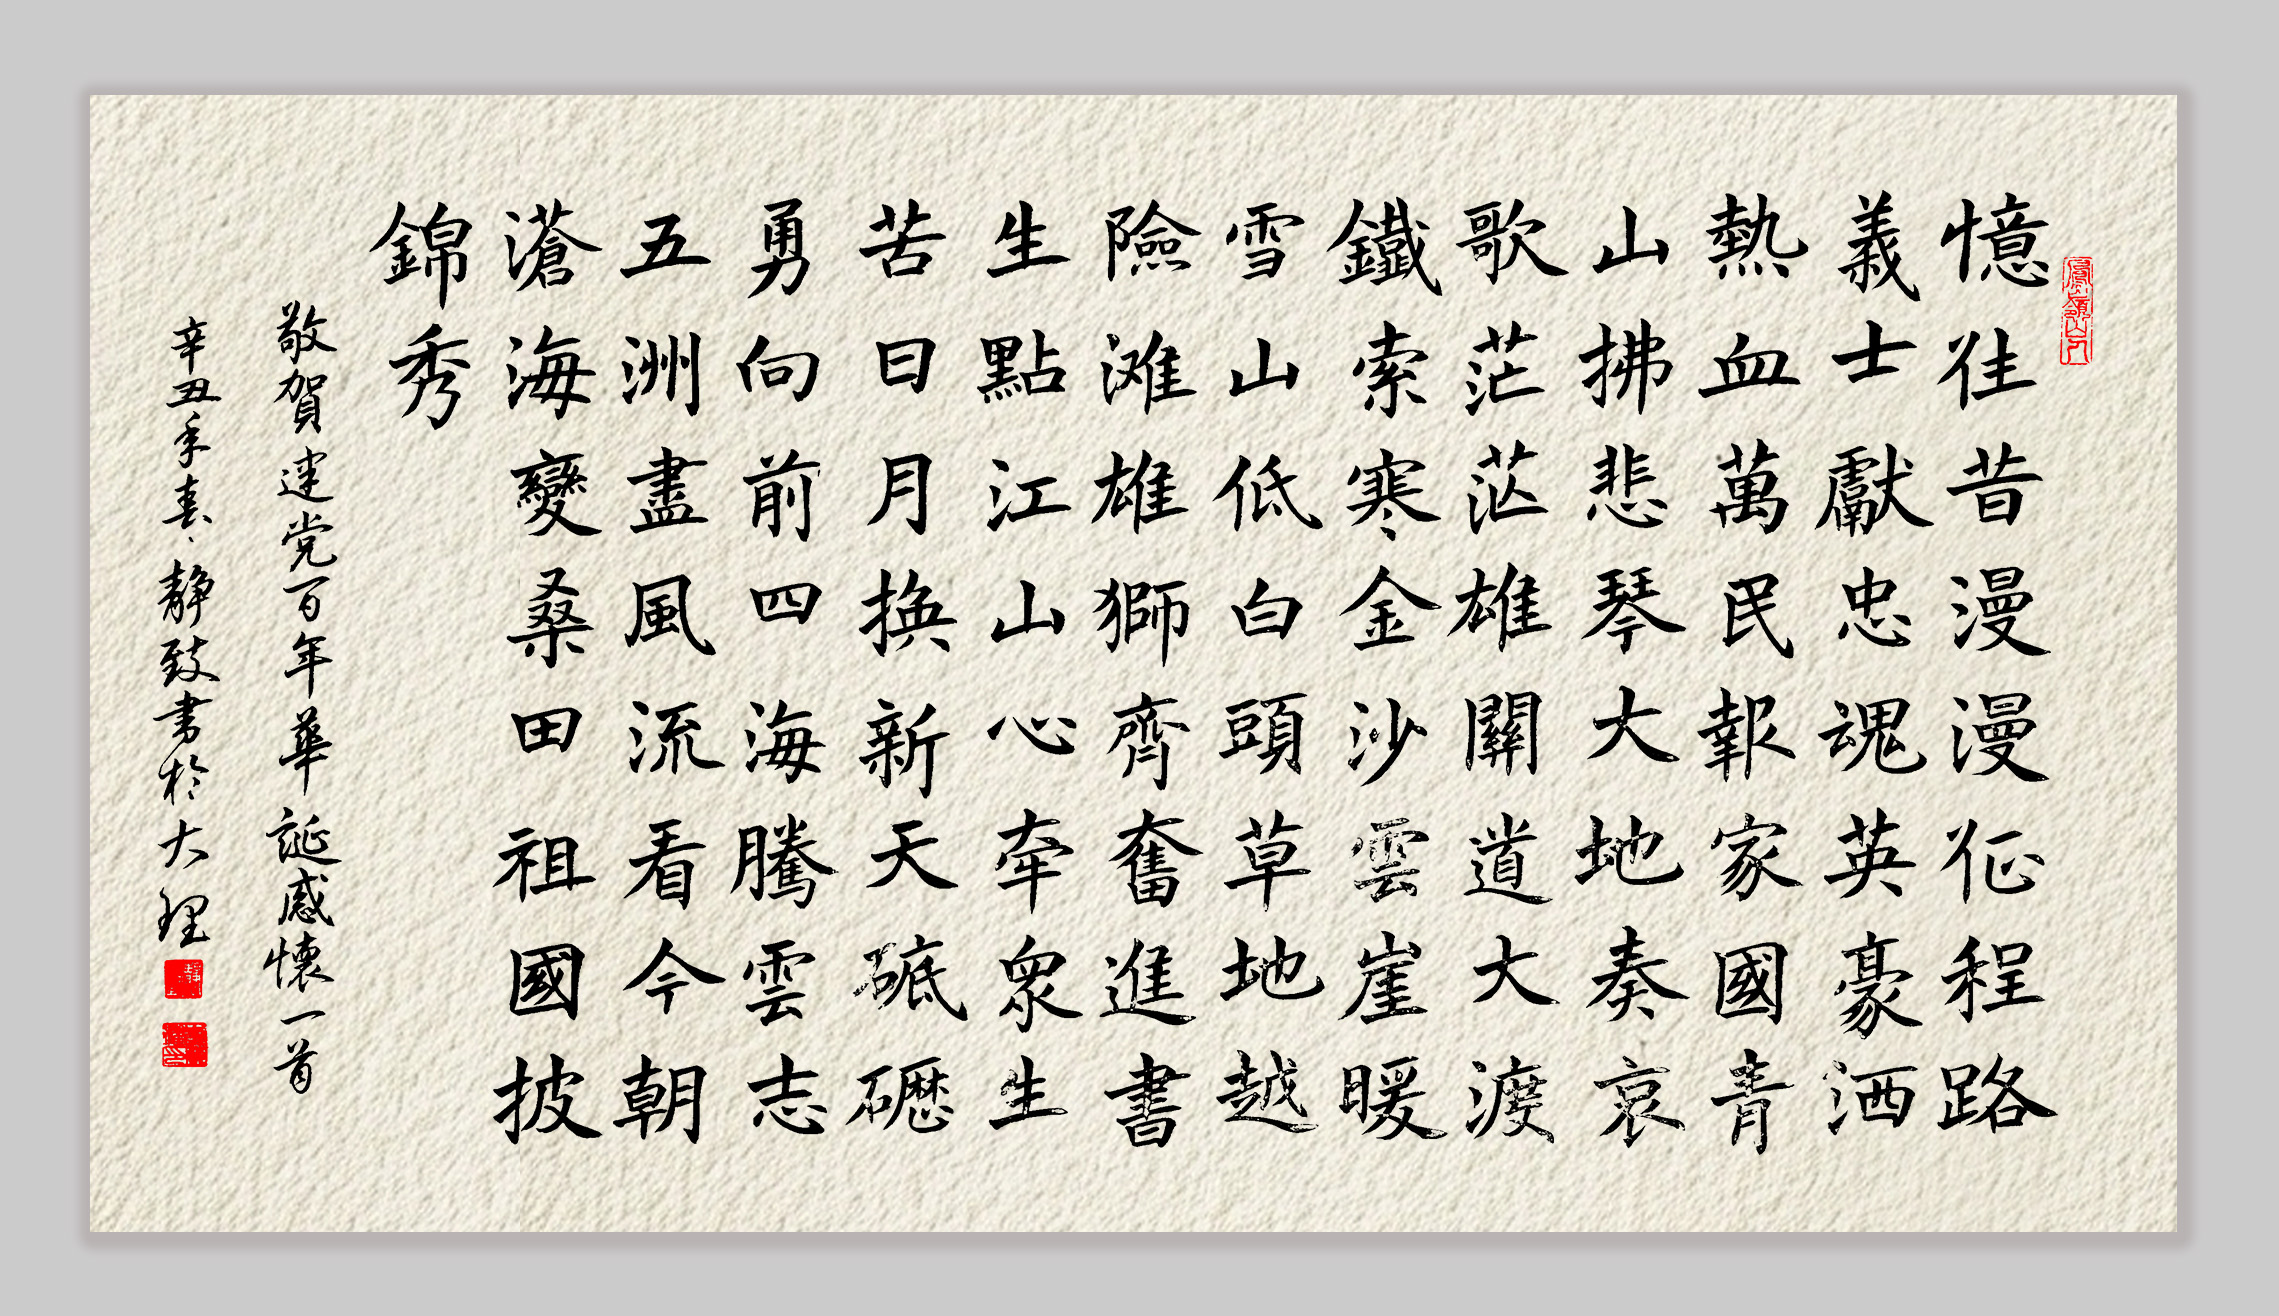 憶往昔漫漫征程路
義士獻忠魂英豪洒
熱血萬民報家國青
山拂悲琴大地奏哀
歌茫茫雄關道大渡
鐵索寒金沙雲崖暖
雪山低白頭草地越
險滩雄獅齊奮進書
生點江山心牽衆生
苦日月換新天砥礪
勇向前四海騰雲志
五洲盡風流看今朝
滄海變桑田祖國披
錦秀
敬賀建党百年華誕感懷一首
辛丑年春静致书於大理